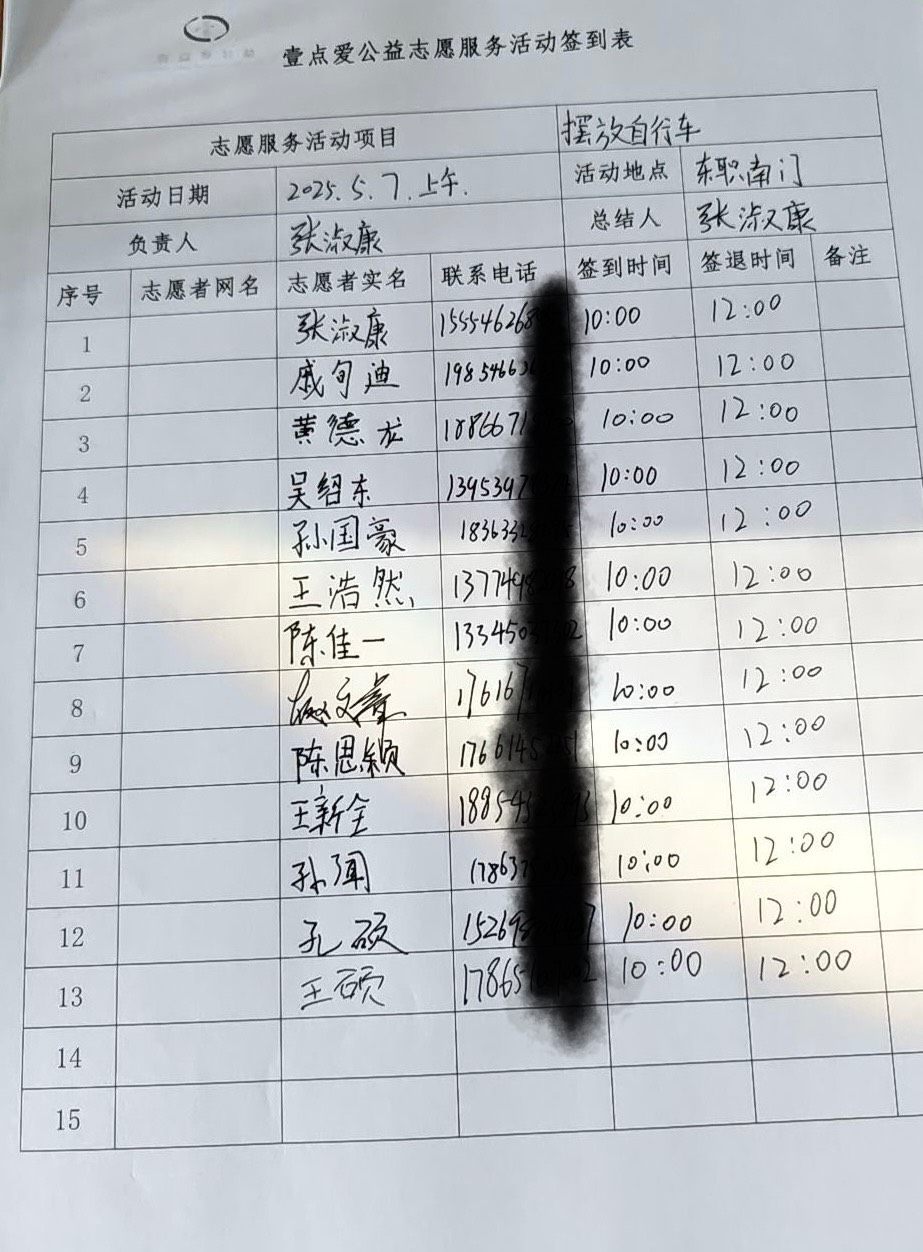 壹点爱公益志愿服务活动签到表
志愿服务活动项目 摆放自行车
活动日期 2025.5.7.上午. 活动地点 东职南门
负责人 张淑康 总结人 张淑康
序号 志愿者网名 志愿者实名 联系电话 签到时间 签退时间 备注
1 张淑康 15554626 10:00 12:00
2 戚旬迪 1985466 10:00 12:00
3 黄德龙 1886671 10:00 12:00
4 吴绍东 1395397 10:00 12:00
5 孙国豪 183633 10:00 12:00
6 王浩然 1377498 10:00 12:00
7 陈佳一 133450 10:00 12:00
8 文 176167 10:00 12:00
9 陈思颖 1766145 10:00 12:00
10 王新全 18854 10:00 12:00
11 孙闻 178637 10:00 12:00
12 孔硕 15269 10:00 12:00
13 王硕 17865 10:00 12:00
14
15